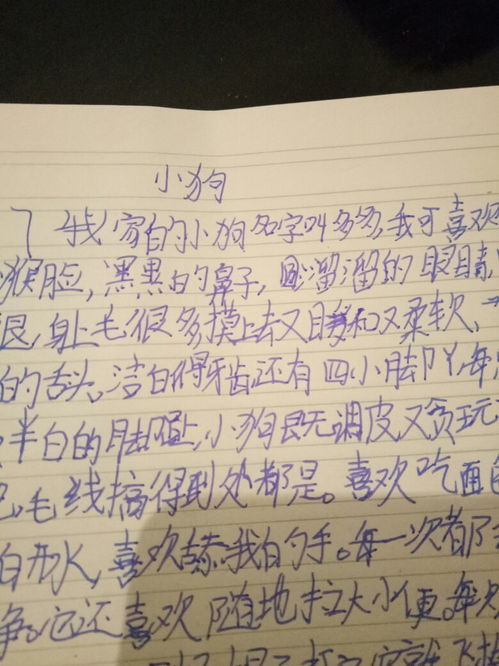 小狗
我家的小狗名字叫多多,我可喜欢
猴脸,黑黑的鼻子,圆溜溜的眼睛
很,身上毛很多摸上去又暖和又柔软,
的舌头,洁白得牙齿还有四小脚丫,每
半白的脚,小狗既调皮又贪玩
毛线搞得到处都是。喜欢吃面
水,喜欢舔我的手。每一次都
净。它还喜欢随地拉大小便。每